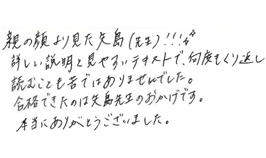 親の顔より見た矢島(先生)!!!✨
詳しい説明と見やすいテキストで、何度もくり返し
読むことも苦ではありませんでした。
合格できたのは矢島先生のおかげです。
本当にありがとうございました。